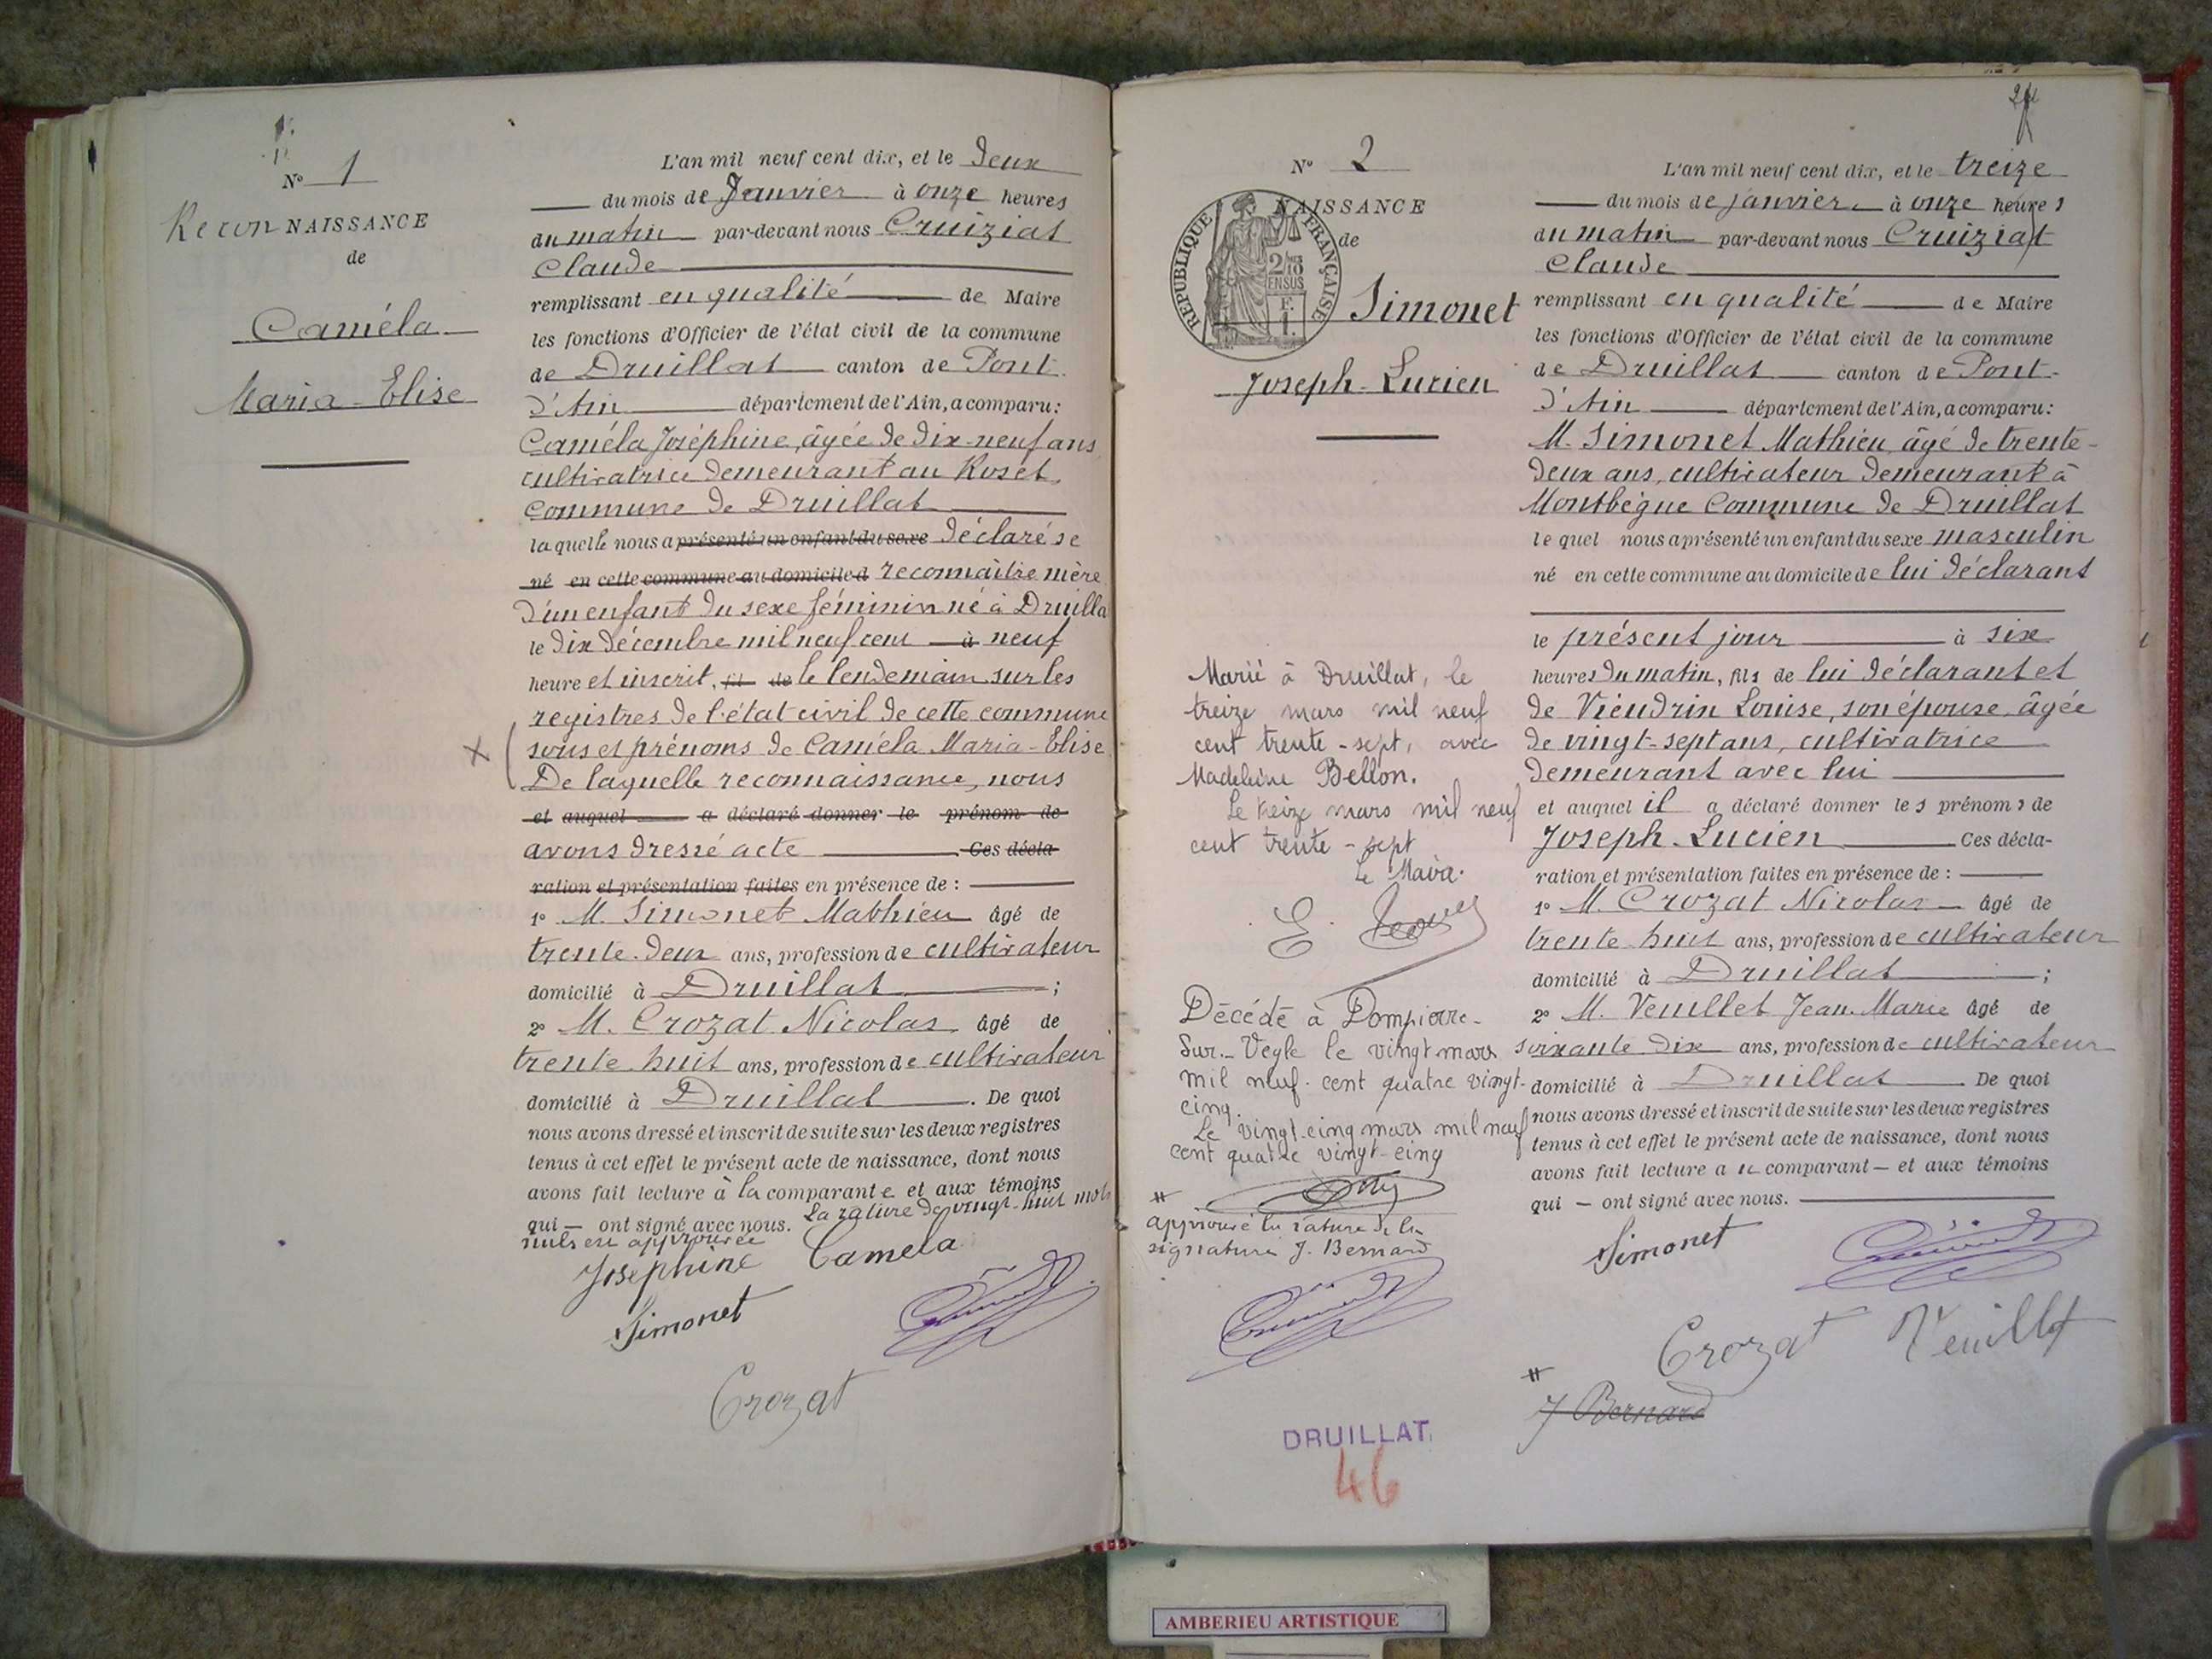 Nº 1
ReconNAISSANCE
de
Caméla
Maria-Elise
L'an mil neuf cent dix, et le deux
du mois de Janvier à onze heures
du matin par-devant nous Cruiziat
Claude
remplissant en qualité de Maire
les fonctions d'Officier de l'état civil de la commune
de Druillat canton de Pont-
d'Ain département de l'Ain, a comparu:
Caméla Joséphine, âgée de dix-neuf ans
cultivatrice demeurant au Roset,
commune de Druillat
laquelle nous a présenté un enfant du sexe déclaré se
né en cette commune au domicile d reconnaître mère
d'un enfant du sexe féminin né à Druilla
le dix décembre mil neuf cent à neuf
heure et inscrit, fil de le lendemain sur les
registres de l'état civil de cette commune
sous et prénoms de Caméla Maria-Elise
De laquelle reconnaissance, nous
et auquel a déclaré donner le prénom de
avons dressé acte Ces décla-
ration et présentation faites en présence de :
1º M. Simonet Mathieu âgé de
trente-deux ans, profession de cultivateur
domicilié à Druillat ;
2º M. Crozat Nicolas âgé de
trente huit ans, profession de cultivateur
domicilié à Druillat. De quoi
nous avons dressé et inscrit de suite sur les deux registres
tenus à cet effet le présent acte de naissance, dont nous
avons fait lecture à la comparante et aux témoins
qui — ont signé avec nous. La rature de vingt-huit mots
nuls est approuvée
Joséphine Camela
Simonet
Crozat
Nº 2
NAISSANCE
de
REPUBLIQUE FRANÇAISE
2/10
EN SUS
F.
1.
Simonet
Joseph-Lucien
L'an mil neuf cent dix, et le treize
du mois de janvier à onze heures
du matin par-devant nous Cruiziat
Claude
remplissant en qualité de Maire
les fonctions d'Officier de l'état civil de la commune
de Druillat canton de Pont-
d'Ain département de l'Ain, a comparu:
M. Simonet Mathieu âgé de trente-
deux ans, cultivateur demeurant à
Montbègue Commune de Druillat
lequel nous a présenté un enfant du sexe masculin
né en cette commune au domicile de lui déclarant
le présent jour à six
heures du matin, fils de lui déclarant et
de Vieudrin Louise, son épouse, âgée
de vingt-sept ans, cultivatrice
demeurant avec lui
et auquel il a déclaré donner les prénoms de
Joseph-Lucien Ces décla-
ration et présentation faites en présence de :
1º M. Crozat Nicolas âgé de
trente huit ans, profession de cultivateur
domicilié à Druillat ;
2º M. Veuillet Jean-Marie âgé de
soixante dix ans, profession de cultivateur
domicilié à Druillat De quoi
nous avons dressé et inscrit de suite sur les deux registres
tenus à cet effet le présent acte de naissance, dont nous
avons fait lecture au comparant — et aux témoins
qui — ont signé avec nous.
Simonet
Crozat Veuillet
J Bernard
Marié à Druillat, le
treize mars mil neuf
cent trente-sept, avec
Madeleine Bellon.
Le treize mars mil neuf
cent trente-sept
Le Maire.
Décédé à Dompierre-
Sur-Veyle le vingt mars
mil neuf-cent quatre vingt-
cinq.
Le vingt-cinq mars mil neuf
cent quatre vingt-cinq
approuvé la rature de la
signature J. Bernard
DRUILLAT
46
AMBERIEU ARTISTIQUE